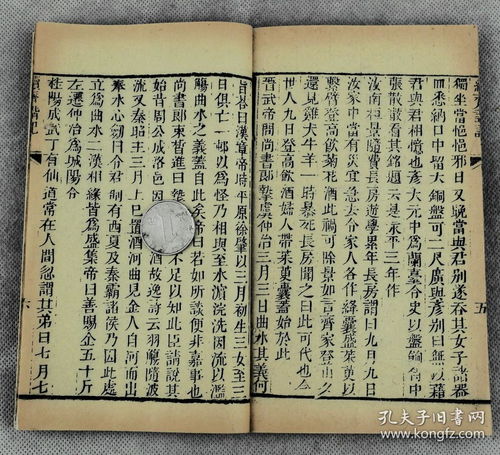 五
獨坐當悒悒邪日又晚當與君別遂吞其女子諸器
皿悉納口中留大銅盤可二尺廣與彥別曰無以藉
君與君相憶也彥大元中為蘭臺令史以盤餉侍中
張散散看其銘題云是永平三年作
汝南桓景隨費長房遊學累年長房謂曰九月九日
汝家中當有災宜急去令家人各作絳囊盛茱萸以
繫臂登高飲菊花酒此禍可除景如言齊家登山夕
還見雞犬牛羊一時暴死長房聞之曰此可代也今
世人九日登高飲酒婦人帶茱萸囊蓋始於此
晉武帝問尚書郎摯虞仲治三月三日曲水其義何
旨荅曰漢章帝時平原徐肇以三月初生三女至三
日俱亡一邨以為怪乃相與至水濱洗洗因流以濫
觴曲水之義蓋自此矣帝曰若如所談便非嘉事也
尚書郎束晳進曰摯不足以知此臣請說其
始昔周公成洛邑酒故逸詩云羽觴隨波
流又秦昭王三月上巳置酒河曲見金人自河而出
奉水心劍曰令君制有西夏及秦霸諸侯乃因此處
立為曲水二漢相緣皆為盛集帝曰善賜金五十斤
左遷仲治為城陽令
桂陽成武丁有仙道常在人間忽謂其弟曰七月七
續齊諧記
六
孔夫子旧书网
www.kongfz.com